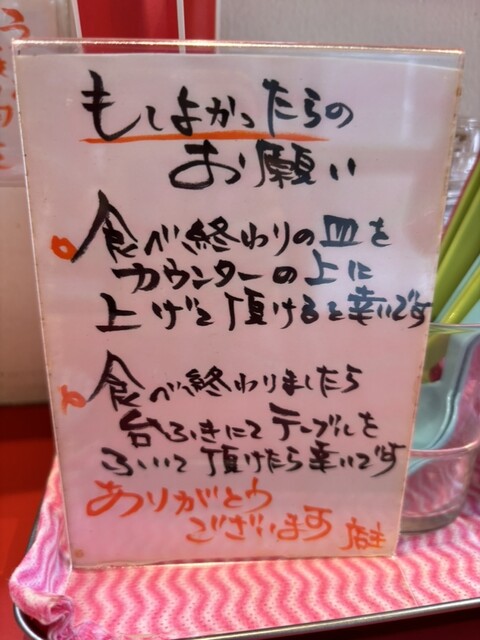 もしよかったらの
お願い
食べ終わりの皿を
カウンターの上に
上げて頂けると幸いです
食べ終わりましたら
台ふきにてテーブルを
ふいて頂けたら幸いです
ありがとう
ございます 店主